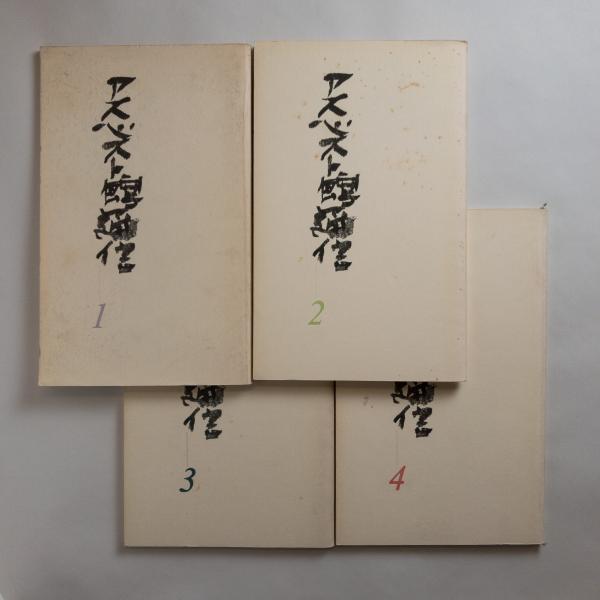 アスベスト館通信
1
アスベスト館通信
2
通信
3
通信
4